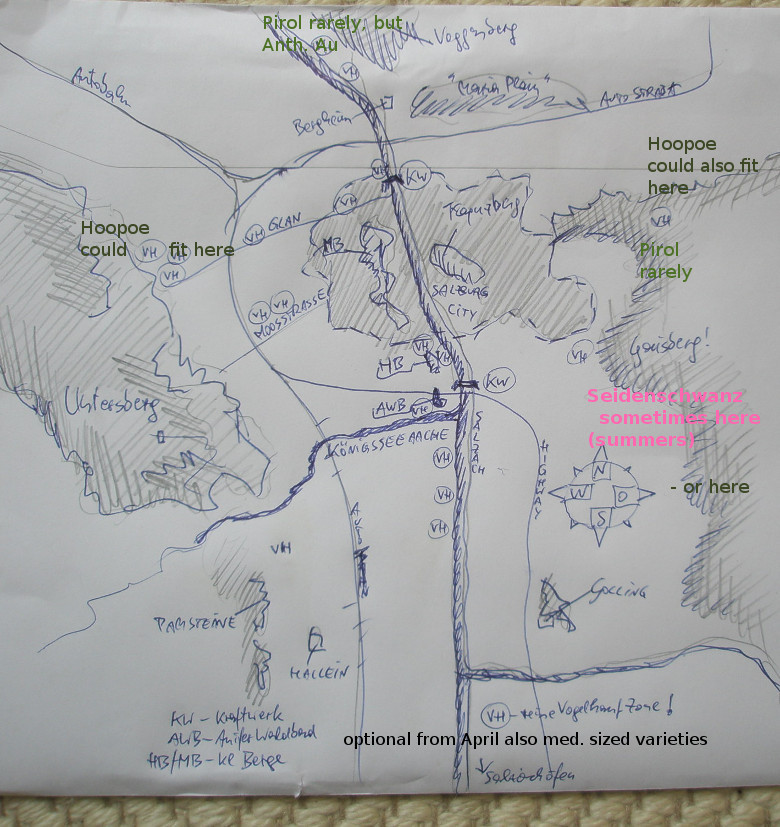 Pirol rarely, but
Anth. Au
VH
VH
Voggenberg
Autobahn
"Maria Plain"
AUTOSTRADA
Bergheim
Hoopoe
could also fit
here
VH
KW
VH
Kapuzberg!
VH
Hoopoe
could VH VH fit here
VH
VH GLAN
MB
Pirol
rarely
SALZBURG
CITY
VH VH
MOOSSTRASSE
VH
VH
HB
VH
Gaisberg!
KW
Untersberg
AWB VH
Seidenschwanz
sometimes here
(summers)
KÖNIGSSEEACHE
SALZACH
HIGHWAY
VH
N
W O
S
- or here
VH
VH
VH
GOLLING
HALLEIN
KW - Kraftwerk
AWB - Anifer Waldbad
HB/MB - kl Berge
VH - eine Vogelhauf Zone!
optional from April also med. sized varieties